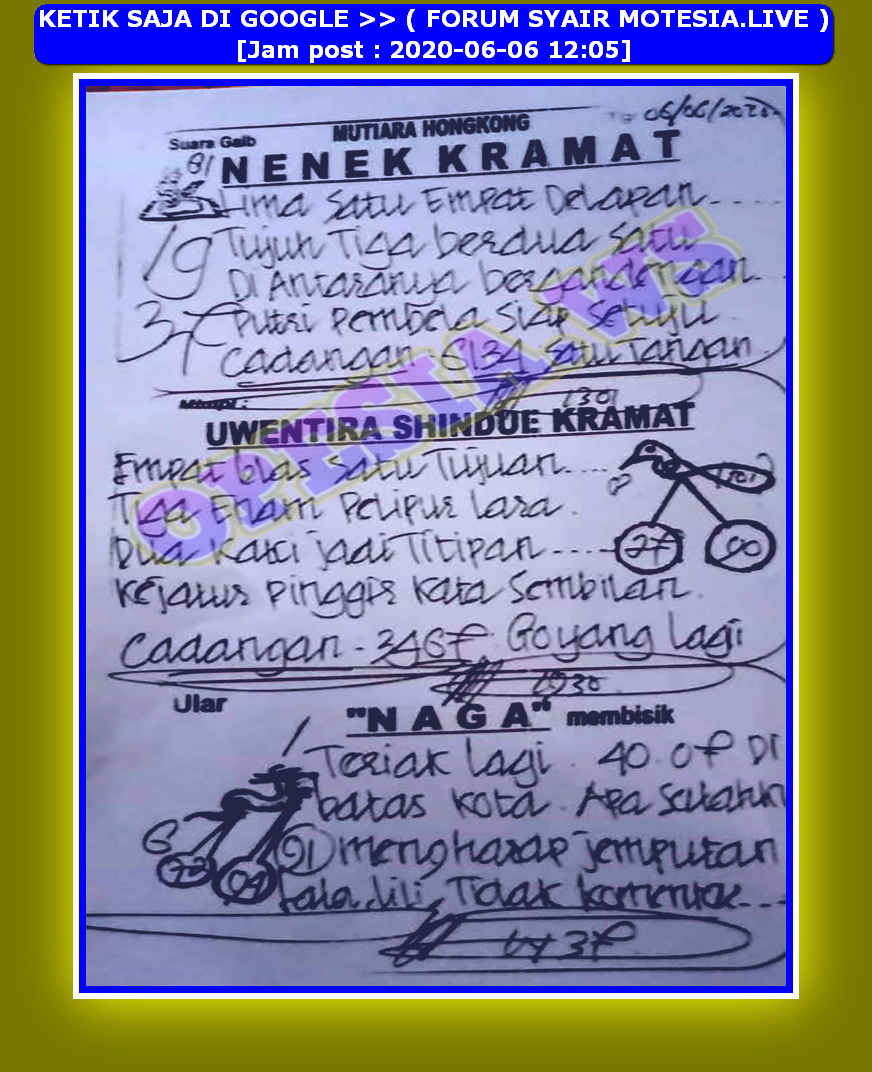 KETIK SAJA DI GOOGLE >> ( FORUM SYAIR MOTESIA.LIVE )
[Jam post : 2020-06-06 12:05]
06/06/2020
MUTIARA HONGKONG
Suara Gaib
NENEK KRAMAT
Lima Satu Empat Delapan....
Tujuh Tiga berdua satu
19
Di Antaranya bergandengan...
37
Putri Pembela Siap Setuju
Cadangan - 5134 Satu Tangan
Mimpi :
UWENTIRA SHINDUE KRAMAT
Empat blas satu Tujuan....
Tiga Enam Pelipur Lara.
Dua Kaki jadi Titipan----
27
00
Pinggir Kata Sembilan.
Cadangan - 3467. Goyang lagi
1930
Ular
"NAGA" membisik
Teriak lagi. 40.07 DI
batas kota. Apa
91 mengharap jemputan
Tidak
by 37
OPESIA.WS